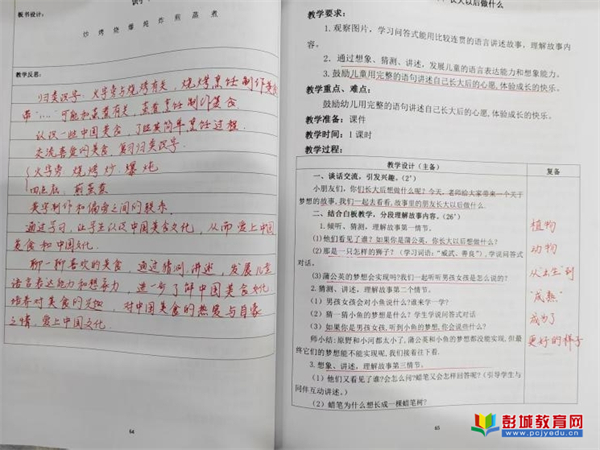 板书设计：
炒 烤 烧 爆 炖 炸 煎 蒸 煮
教学反思：
归类识字，火字旁与烧烤有关，烧烤烹饪制作美食
带"灬"可能和蒸煮有关，蒸煮烹饪制作美食
认识一些中国美食，了解其简单烹饪过程
交流喜爱的美食，复习归类识字。
火字旁 烧 烤 炒 爆 炖
四点底 煎 蒸 煮
美食制作和偏旁之间的联系
通过学习，让学生认识中国美食文化，从而爱上中国
美食和中国文化
聊一聊喜欢的美食，通过猜测、讲述，发展儿童
语言表达能力和想象力，进一步了解中国美食文化
培养对美食的兴趣，对中国美食的热爱与自豪
之情，爱上中国文化
64
长大以后做什么
教学要求：
1.观察图片，学习问答式能用比较连贯的语言讲述故事，理解故事内
容。
2.通过想象、猜测、讲述，发展儿童的语言表达能力和想象能力。
3.鼓励儿童用完整的语句讲述自己长大后的心愿，体验成长的快乐。
教学重点、难点：
鼓励幼儿用完整的语句讲述自己长大后的心愿，体验成长的快乐。
教学准备：课件
教学时间：1课时
教学过程：
教学设计（主备）
复备
一、谈话交流，引发兴趣。（2'）
小朋友们，你们长大后想做什么呢？今天，老师给大家带来一个关于
梦想的故事，我们一起去看看，故事里的朋友长大以后想做什么。
二、结合白板教学，分段理解故事内容。（26'）
1.倾听、猜测，理解故事第一情节。
（1）他们看见了谁？如果你是蒲公英，你长大以后想做什么？
（2）那是一只怎样的狮子？（学习词语："威武、善良"），学说问答式
对话。
（3）蒲公英的梦想会实现吗？我们一起听听男孩女孩是怎么说的？
2.猜测、讲述，理解故事第二个情节。
（1）男孩女孩会对小鱼说什么？谁来学一学？
（2）猜一猜小鱼的梦想是什么？学生学说问答式对话
（3）如果你是男孩女孩，听到小鱼的梦想，你会说些什么？
师小结：原野和小河都太小了，蒲公英和小鱼的梦想都没能实现，但最
终它们的梦想能不能实现呢，我们接着往下看。
3.想象、讲述，理解故事第三情节。
（1）他们又看见了谁？会怎么问？蜡笔又会怎样回答呢？（引导学生与
同伴互动讲述）
（2）蜡笔为什么想长成一棵蜡笔树？
植物
动物
从"出生"到
"成熟"
成为了
更好的样子
65
彭城教育网
www.pcjyedu.cn